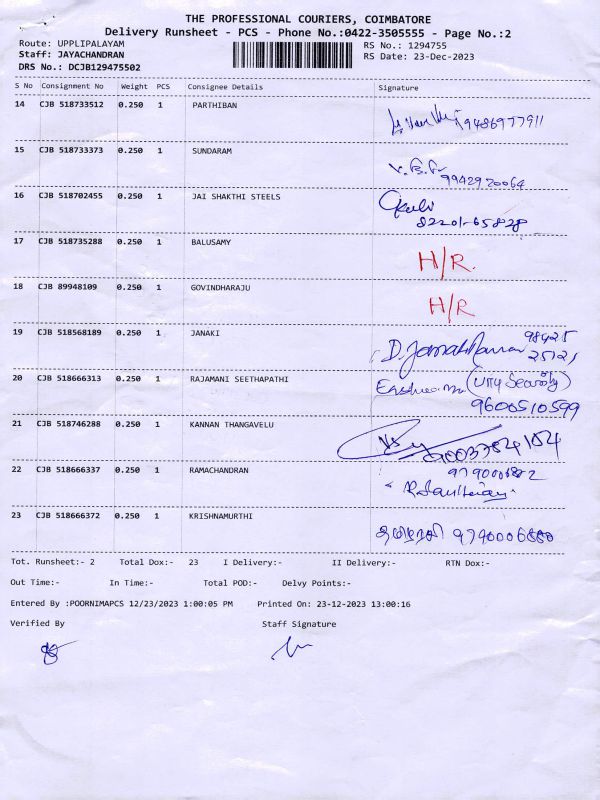 THE PROFESSIONAL COURIERS, COIMBATORE
Delivery Runsheet - PCS - Phone No.:0422-3505555 - Page No.:2
Route: UPPLIPALAYAM RS No.: 1294755
Staff: JAYACHANDRAN RS Date: 23-Dec-2023
DRS No.: DCJB129475502
S No Consignment No Weight PCS Consignee Details Signature
14 CJB 518733512 0.250 1 PARTHIBAN 9486977911
15 CJB 518733373 0.250 1 SUNDARAM
9942920064
16 CJB 518702455 0.250 1 JAI SHAKTHI STEELS
82201-65828
17 CJB 518735288 0.250 1 BALUSAMY H/R.
18 CJB 89948109 0.250 1 GOVINDHARAJU H/R
19 CJB 518568189 0.250 1 JANAKI 98425
25121
20 CJB 518666313 0.250 1 RAJAMANI SEETHAPATHI
9600510599
21 CJB 518746288 0.250 1 KANNAN THANGAVELU
22 CJB 518666337 0.250 1 RAMACHANDRAN
23 CJB 518666372 0.250 1 KRISHNAMURTHI
Tot. Runsheet:- 2 Total Dox:- 23 I Delivery:- II Delivery:- RTN Dox:-
Out Time:- In Time:- Total POD:- Delvy Points:-
Entered By :POORNIMAPCS 12/23/2023 1:00:05 PM Printed On: 23-12-2023 13:00:16
Verified By Staff Signature